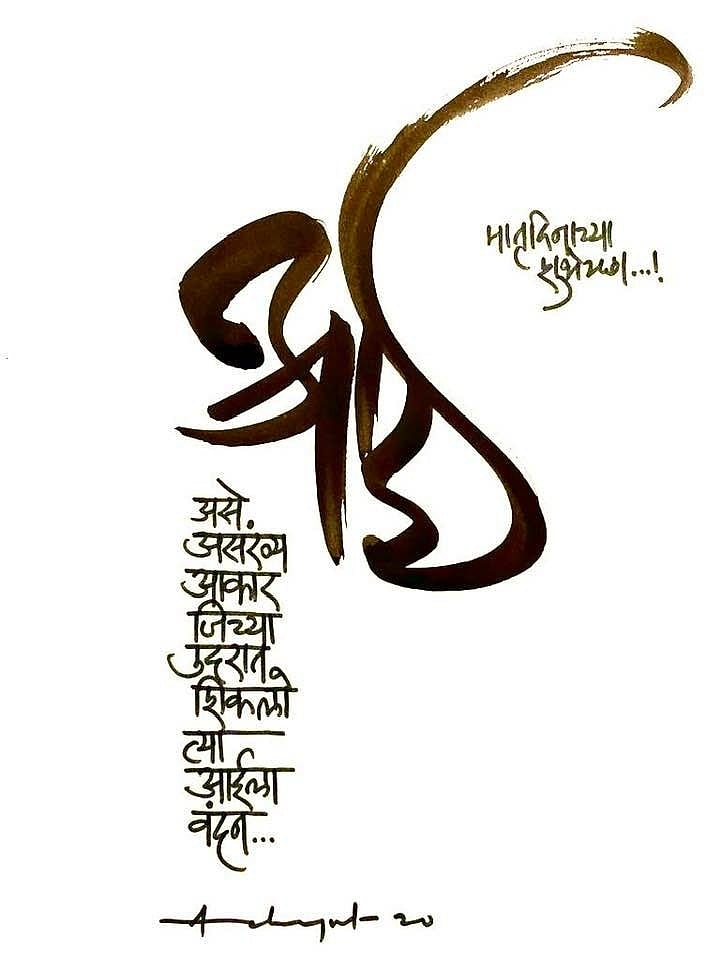 आई
मातृदिनाच्या
शुभेच्छा...!
असे
असंख्य
आकार
जिच्या
उदरात
शिकलो
त्या
आईला
वंदन...
Achyut 20